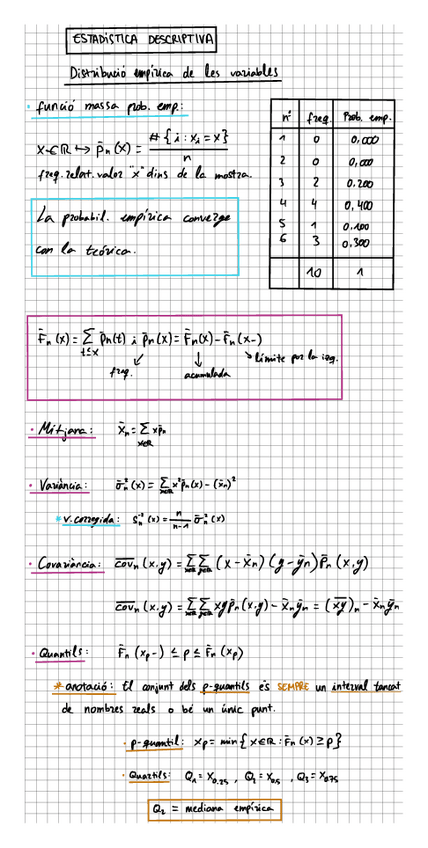 ESTADÍSTICA DESCRIPTIVA
Distribució empírica de les variables
· funció massa prob. emp:
x∈ℝ ↦ p̄ₙ(x) = #{i : xᵢ = x} / n
freq. relat. valor "x" dins de la mostra.
La probabil. empírica converge
con la teórica.
nº freq. Prob. emp.
1 0 0,000
2 0 0,000
3 2 0,200
4 4 0,400
5 1 0,100
6 3 0,300
10 1
F̄ₙ(x) = ∑ p̄ₙ(t) i p̄ₙ(x) = F̄ₙ(x) - F̄ₙ(x-)
t≤x
freq. acumulada límite por la izq.
· Mitjana: x̄ₙ = ∑ x p̄ₙ
x∈ℝ
· Variància: σ̄ₙ²(x) = ∑ x² p̄ₙ(x) - (x̄ₙ)²
x∈ℝ
* v. corregida: s̄ₙ²(x) = n/(n-1) σ̄ₙ²(x)
· Covariància: c̄ōv̄ₙ(x,y) = ∑ ∑ (x - x̄ₙ)(y - ȳₙ) p̄ₙ(x,y)
x∈ℝ y∈ℝ
c̄ōv̄ₙ(x,y) = ∑ ∑ xy p̄ₙ(x,y) - x̄ₙ ȳₙ = (x̄ȳ)ₙ - x̄ₙ ȳₙ
x∈ℝ y∈ℝ
· Quantils: F̄ₙ(xₚ-) ≤ p ≤ F̄ₙ(xₚ)
* anotació: El conjunt dels p-quantils és SEMPRE un interval tancat
de nombres reals o bé un únic punt.
· p-quantil: xₚ = min{x∈ℝ : F̄ₙ(x) ≥ p}
· Quartils: Q₁ = x₀.₂₅ , Q₂ = x₀.₅ , Q₃ = x₀.₇₅
Q₂ = mediana empírica